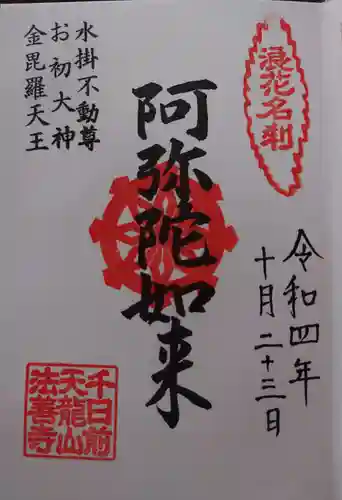 浪花名刹
令和四年
十月二十三日
阿弥陀如来
水掛不動尊
お初大神
金毘羅天王
千日前
天龍山
法善寺